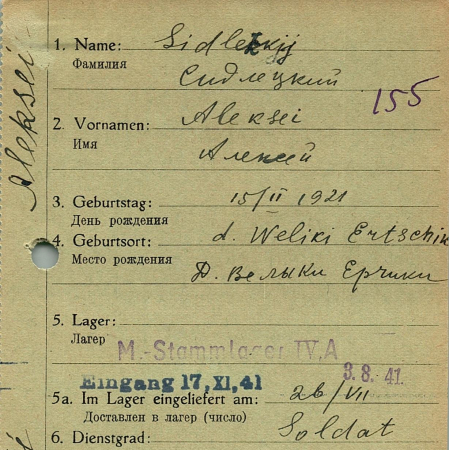 Aleksei
1. Name: Sidletzkij
Фамилия
Сидлецкий
155
2. Vornamen: Aleksei
Имя
Алексей
3. Geburtstag: 15/II 1921
День рождения
4. Geburtsort: d. Weliki Ertschik
Место рождения
Д. Велыки Ерчики
5. Lager:
Лагерь
M.-Stammlager IV, A
3. 8. 41.
Eingang 17, XI, 41
5a. Im Lager eingeliefert am: 26/VII
Доставлен в лагерь (число)
6. Dienstgrad: Soldat